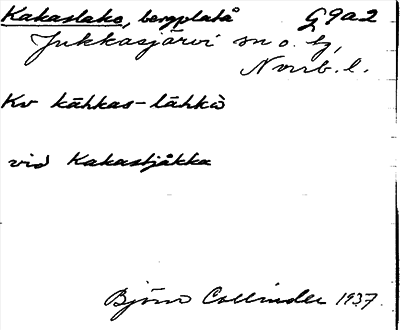 Kakaslako, bergplatå G9a2
Jukkasjärvi sn o. tg,
Norrb. l.
Kv kāhkas-lāhkò
vid Kakastjåkka
Björn Collinder 1937.